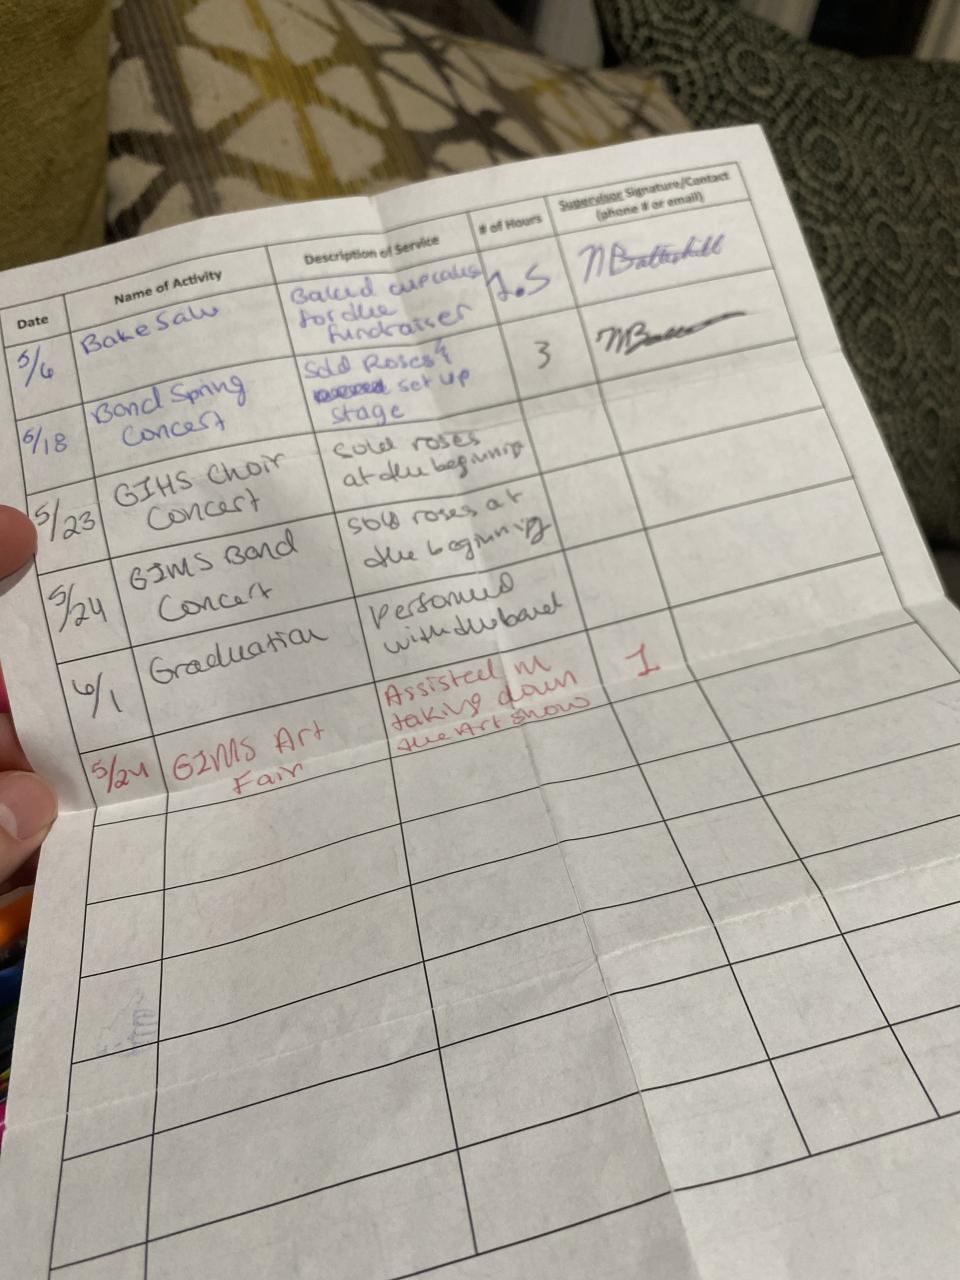 Date
Name of Activity
Description of Service
# of Hours
Supervisor Signature/Contact
(phone # or email)
5/6
Bake Sale
Baked cupcakes
for the
fundraiser
1.5
5/18
Band Spring
Concert
Sold Roses &
set up
stage
3
5/23
GIHS Choir
Concert
Sold roses
at the beginning
5/24
GIMS Band
Concert
Sold roses at
the beginning
6/1
Graduation
Performed
with the band
5/24
GIMS Art
Fair
Assisted in
taking down
the Art Show
1